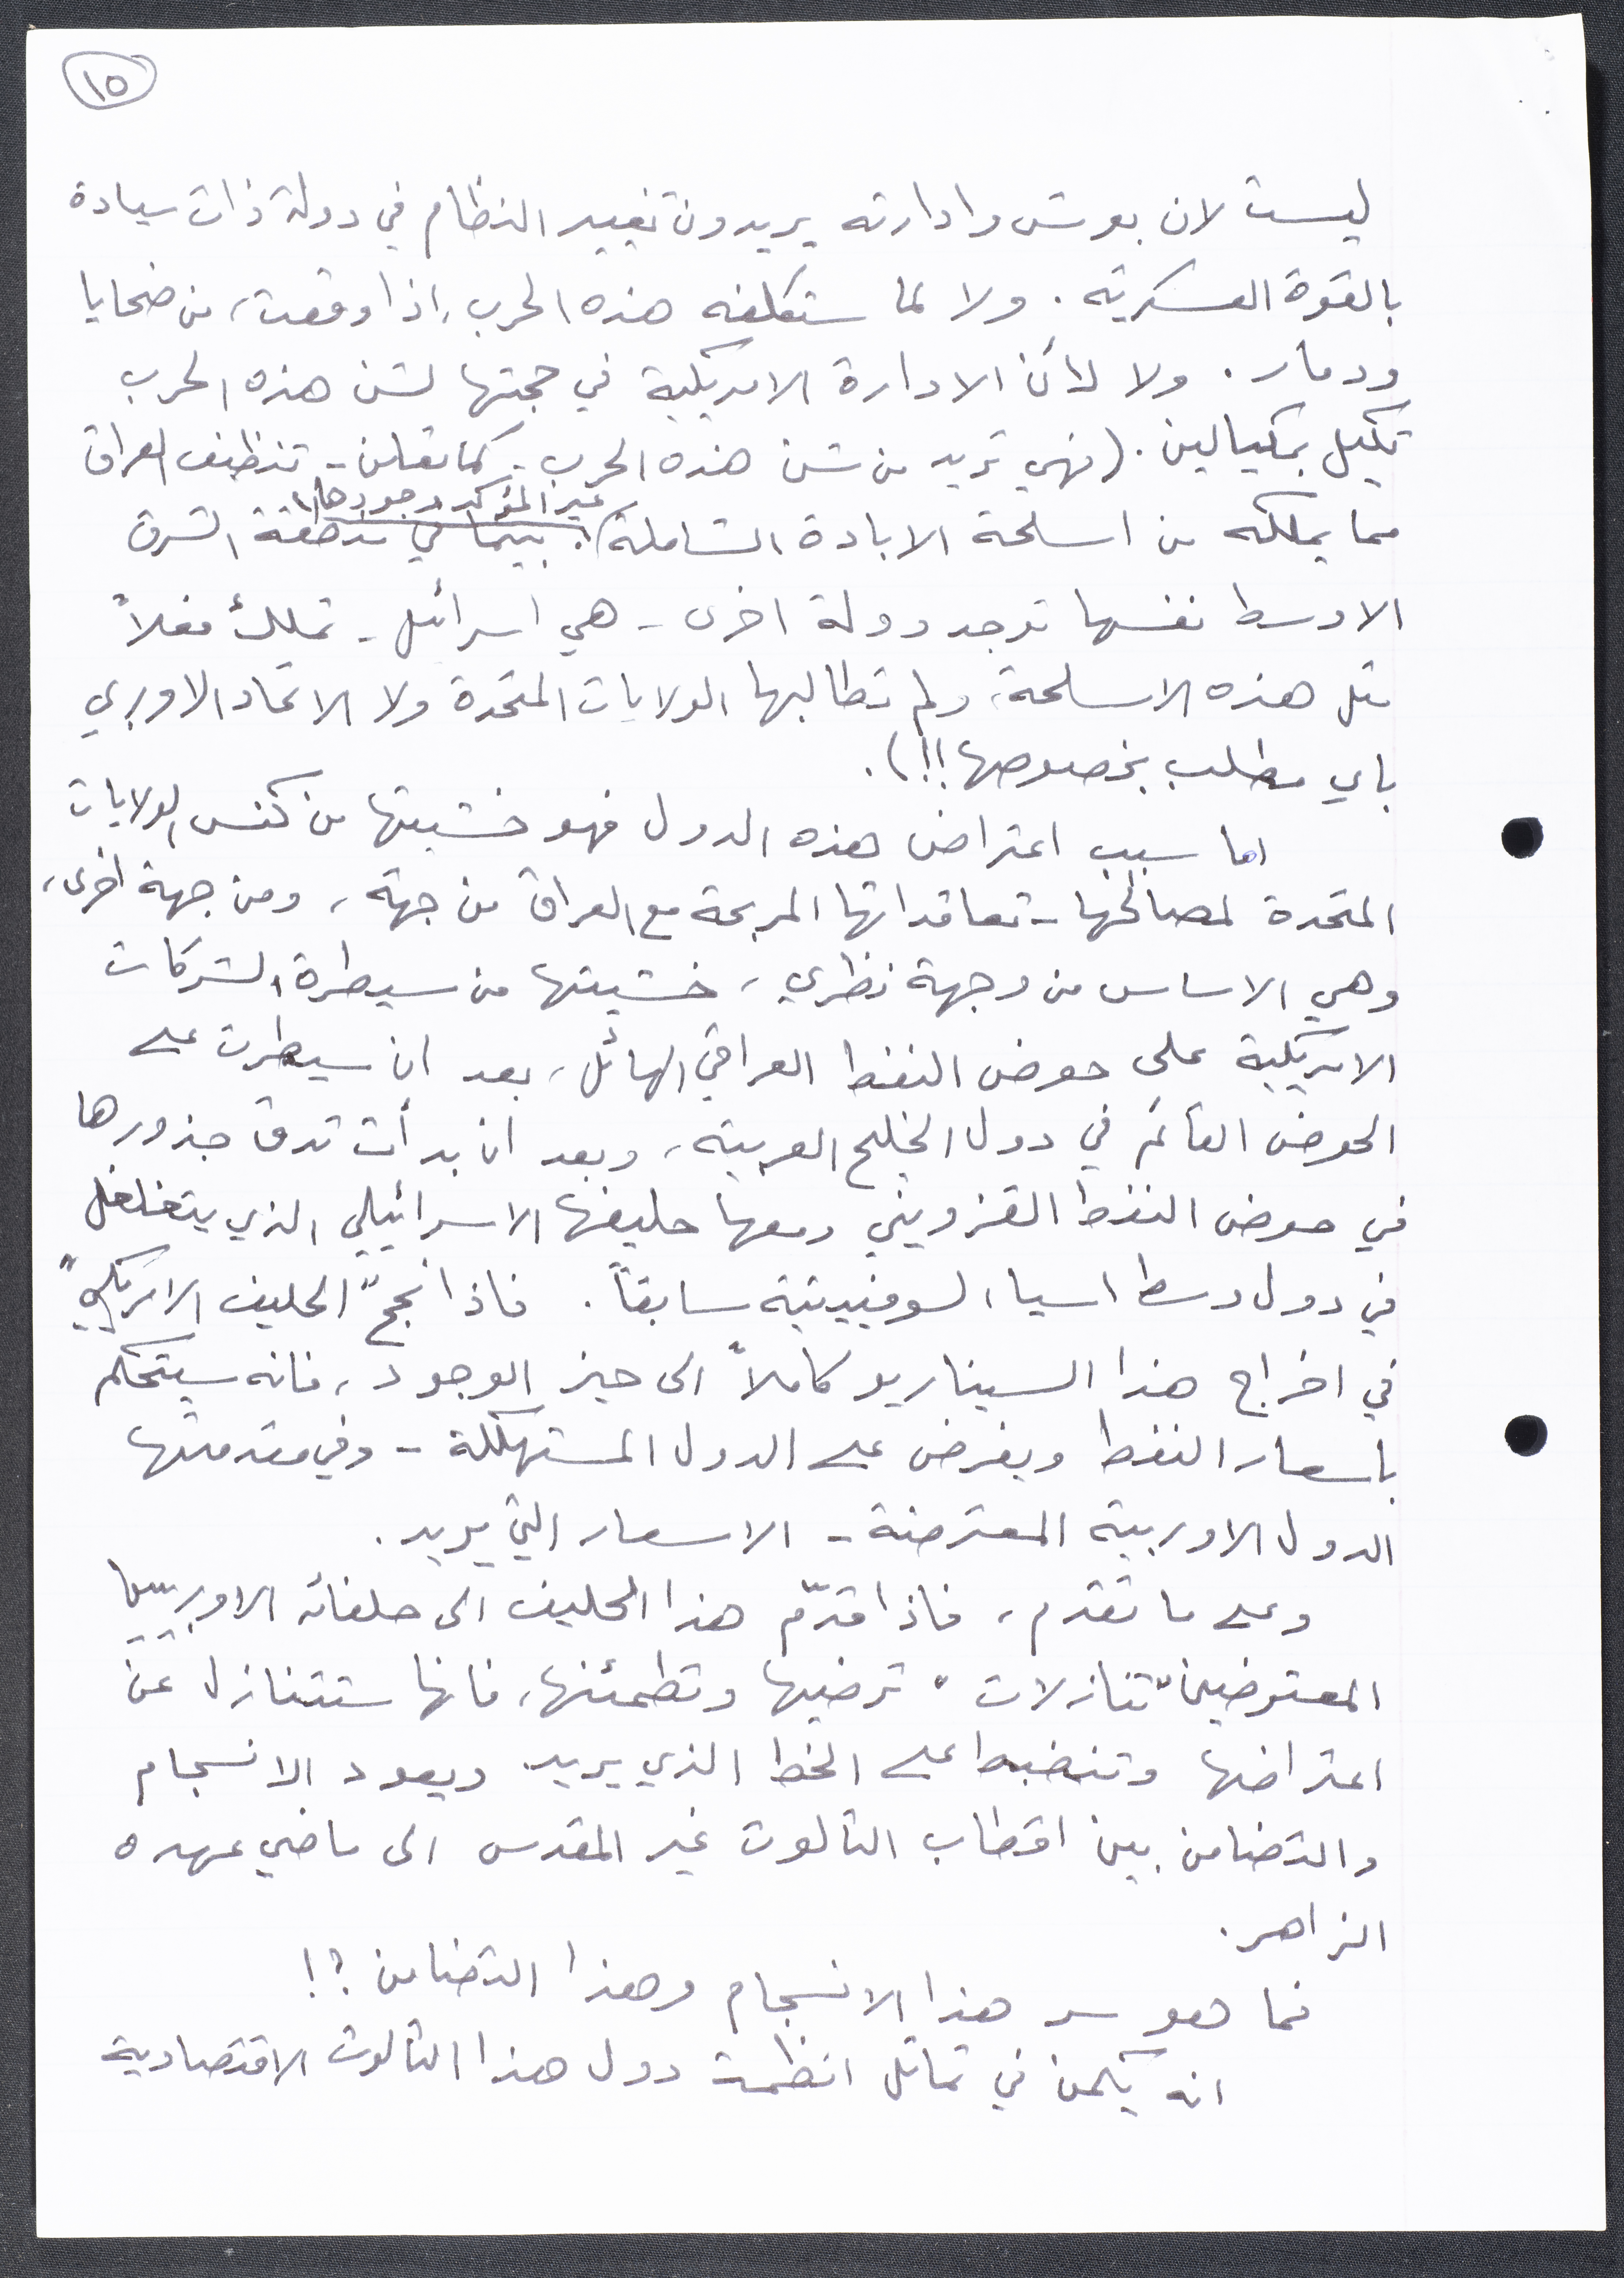 ١٥
ليست لان بوش وادارته يريدون تغيير النظام في دولة ذات سيادة
بالقوة العسكرية . ولا لما ستكلفه هذه الحرب ، اذا وقعت ، من ضحايا
ودمار . ولا لأن الادارة الامريكية في حجتها لشن هذه الحرب
تكيل بمكيالين . ( فهي تريد من شن هذه الحرب - كما تعلن - تنظيف العراق
غير المؤكد وجودها
مما يملكه من اسلحة الابادة الشاملة ، بينما في منطقة الشرق
الاوسط نفسها توجد دولة اخرى - هي اسرائيل - تملك فعلاً
مثل هذه الاسلحة ، ولم تطالبها الولايات المتحدة ولا الاتحاد الاوربي
باي مطلب بخصوصها !! ) .
اما سبب اعتراض هذه الدول فهو خشيتها من كنس الولايات
المتحدة لمصالحها - تعاقداتها المربحة مع العراق من جهة ، ومن جهة اخرى ،
وهي الاساس من وجهة نظري ، خشيتها من سيطرة الشركات
الامريكية على حوض النفط العراقي الهائل ، بعد ان سيطرت على
الحوض القائم في دول الخليج العربية ، وبعد ان بدأت تدق جذورها
في حوض النفط القزويني ومعها حليفها الاسرائيلي الذي يتغلغل
في دول وسط اسيا السوفييتية سابقاً . فاذا نجح " الحليف الامريكي "
في اخراج هذا السيناريو كاملاً الى حيز الوجود ، فانه سيتحكم
باسعار النفط ويفرض على الدول المستهلكة - وفي مقدمتها
الدول الاوربية المعترضة - الاسعار التي يريد .
وعلى ما تقدم ، فاذا قدّم هذا الحليف الى حلفائه الاوربيين
المعترضين " تنازلات " ترضيها وتطمئنها ، فانها ستتنازل عن
اعتراضها وتنضبط على الخط الذي يريد ويعود الانسجام
والتضامن بين اقطاب الثالوث غير المقدس الى ماضي عهده
الزاهر .
فما هو سر هذا الانسجام وهذا التضامن ؟ !
انه يكمن في تماثل انظمة دول هذا الثالوث الاقتصادية